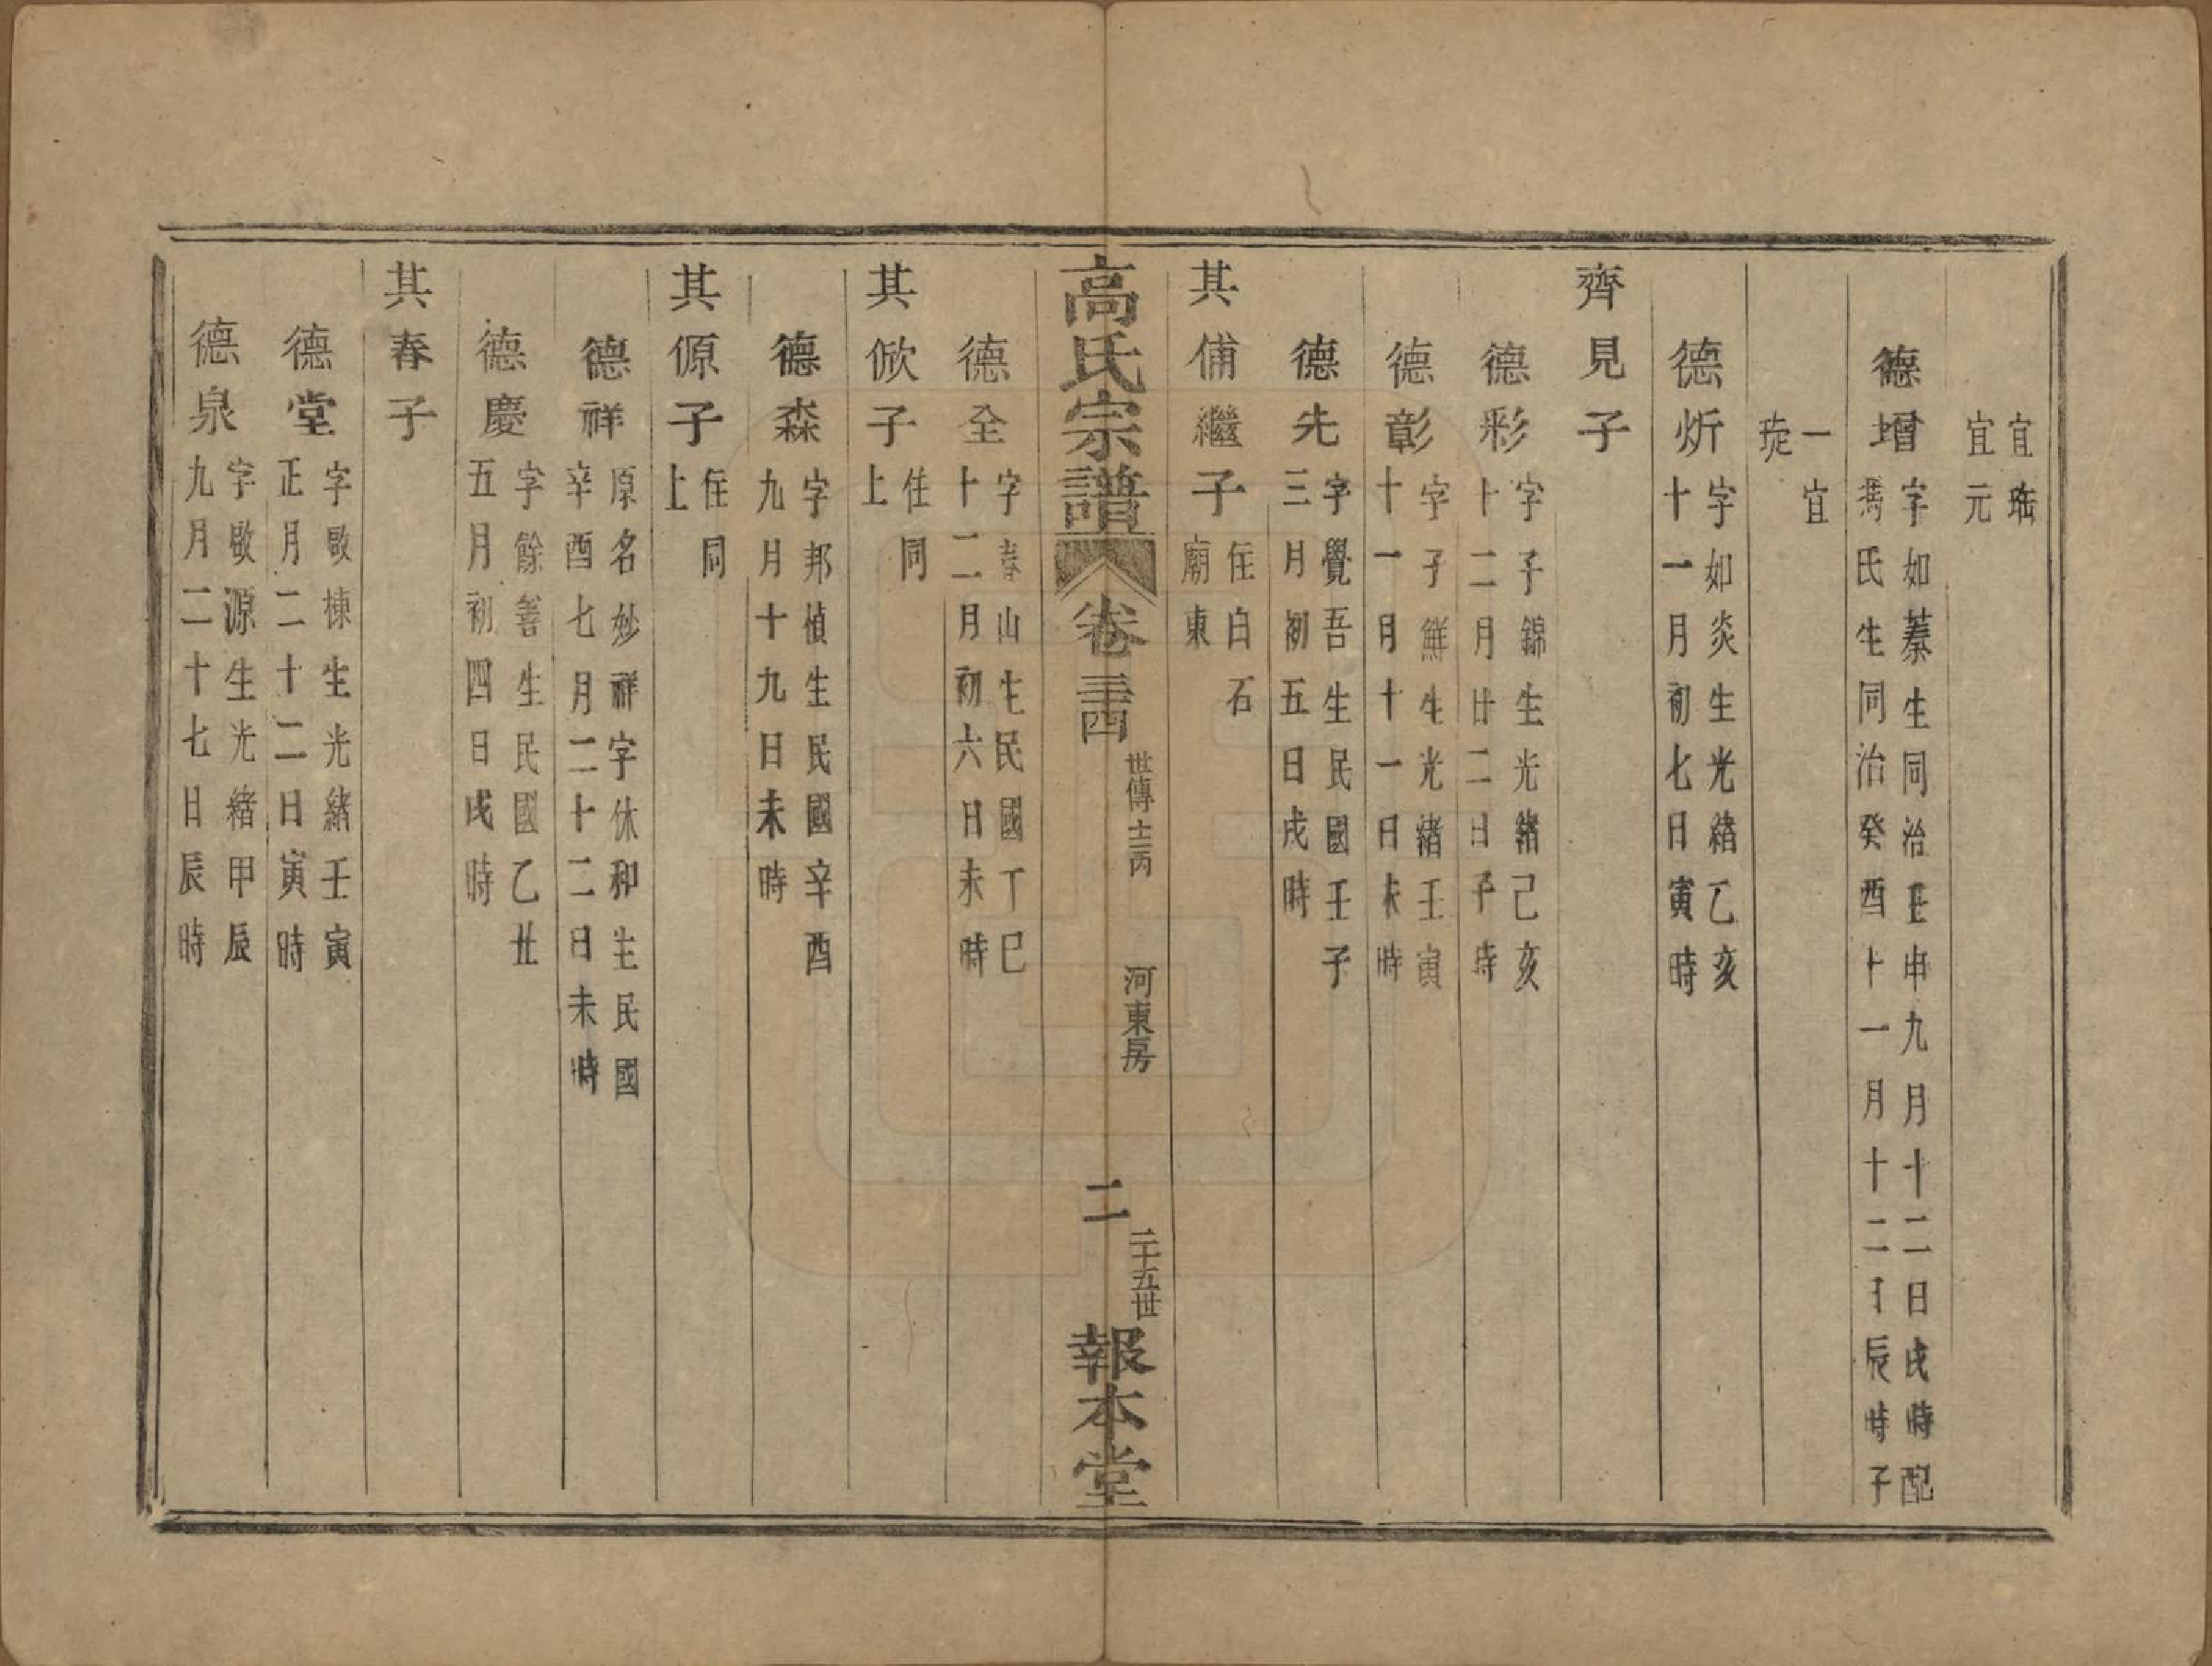 宜珤
宜元
德增 字如蓁生同治壬申九月十二日戌時配
馮氏生同治癸酉十一月十二日辰時子
一宜
琔
德炘 字如炎生光緒乙亥
十一月初七日寅時
齊見子
德彩 字子錦生光緒己亥
十二月廿二日子時
德彰 字子鮮生光緒壬寅
十一月十一日未時
德先 字覺吾生民國壬子
三月初五日戌時
其俌繼子 住白石
廟東
高氏宗譜 卷三四 世傳 士丙 河東房 二 二十五世 報本堂
德全 字春山生民國丁巳
十二月初六日未時
其俽子 住同
上
德森 字邦楨生民國辛酉
九月十九日未時
其傆子 住同
上
德祥 原名妙祥字休和生民國
辛酉七月二十二日未時
德慶 字餘善生民國乙丑
五月初四日戌時
其春子
德堂 字敭棟生光緒壬寅
正月二十二日寅時
德泉 字敭源生光緒甲辰
九月二十七日辰時